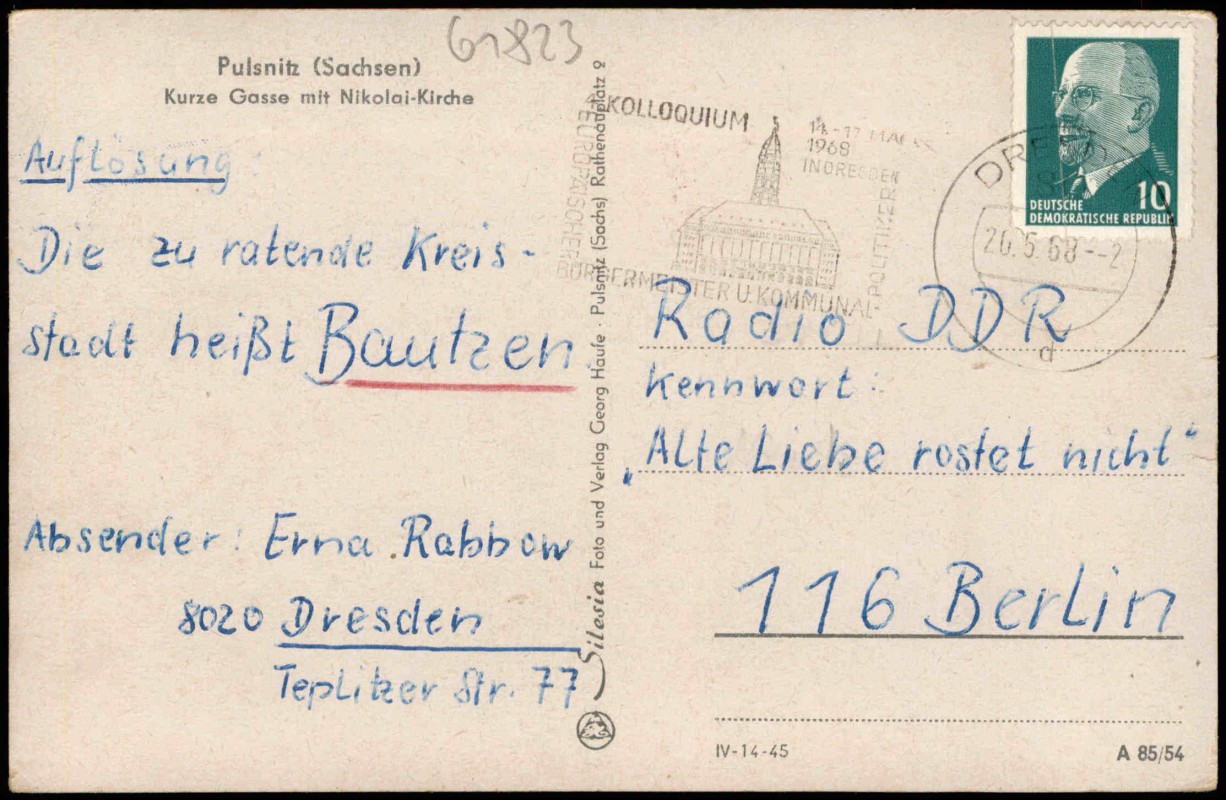 61823
Pulsnitz (Sachsen)
Kurze Gasse mit Nikolai-Kirche
Auflösung:
Die zu ratende Kreis-
stadt heißt Bautzen.
Absender: Erna Rabbow
8020 Dresden
Teplitzer Str. 77
Silesia Foto und Verlag Georg Haufe · Pulsnitz (Sachs) Rathenauplatz 2
KOLLOQUIUM
EUROPÄISCHER
BÜRGERMEISTER U. KOMMUNAL-
POLITIKER
14.-17. MAI
1968
IN DRESDEN
DRESDEN
20.5.68--2
d
10
DEUTSCHE
DEMOKRATISCHE REPUBLIK
Radio DDR
Kennwort:
„Alte Liebe rostet nicht“
116 Berlin
IV-14-45
A 85/54